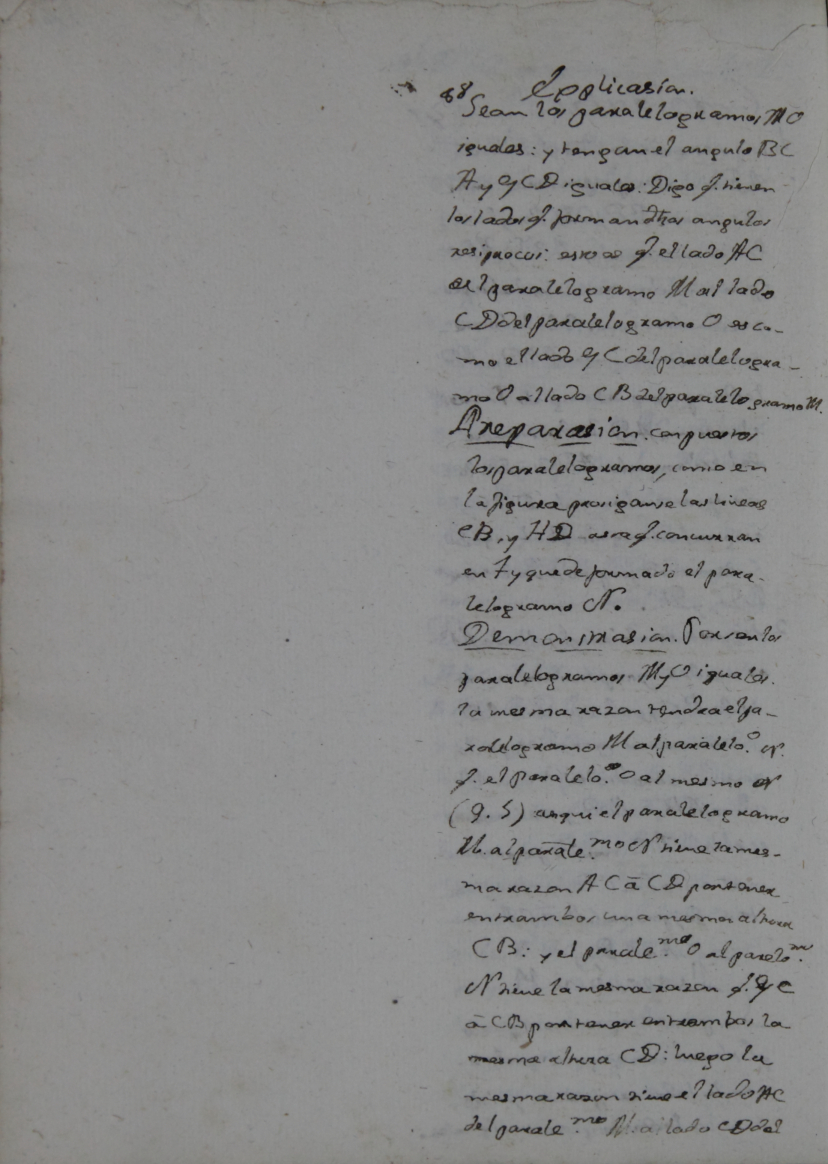 68 Applicasion.
Sean los paralelogramos M O
iguales: y tengan el angulo BC
A y GCD iguales: Digo q. tienen
los lados q. forman dhos angulos
resiprocos: esto es q. el lado AC
del paralelogramo M al lado
CD del paralelogramo O es co-
mo el lado GC del paralelogra-
mo O al lado CB del paralelogramo M.
Preparasion. conpuestos
los paralelogramos, como en
la figura prosiganse las lineas
EB, y HD asta q. concurran
en F y quede formado el para-
lelogramo N.
Demonstrasion. Por ser los
paralelogramos M y O iguales.
la mesma razon tendra el pa-
ralelogramo M al paralelo.º N.
q. el paralelo.º O al mesmo N
(9. 5) aqui el paralelogramo
M. al parale.mo N tiene la mes-
ma razon AC à CD por tener
entrambos una mesma altura
CB: y el parale.mo O al paralo.m
N tiene la mesma razon q. GC
à CB por tener entrambos la
mesma altura CD: luego la
mesma razon tiene el lado AC
del parale.mo M. al lado CD del